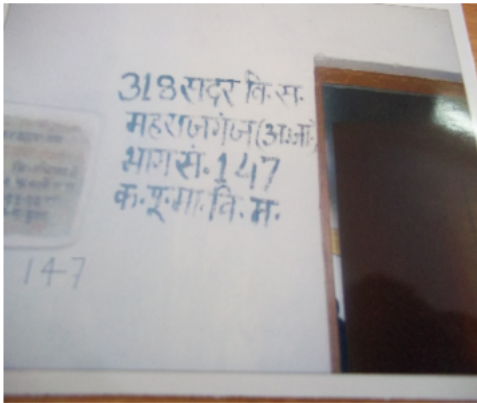 318 सदर वि. स.
महराजगंज (अ.जा.)
भाग सं. 147
क. पू. मा. वि. म.
147